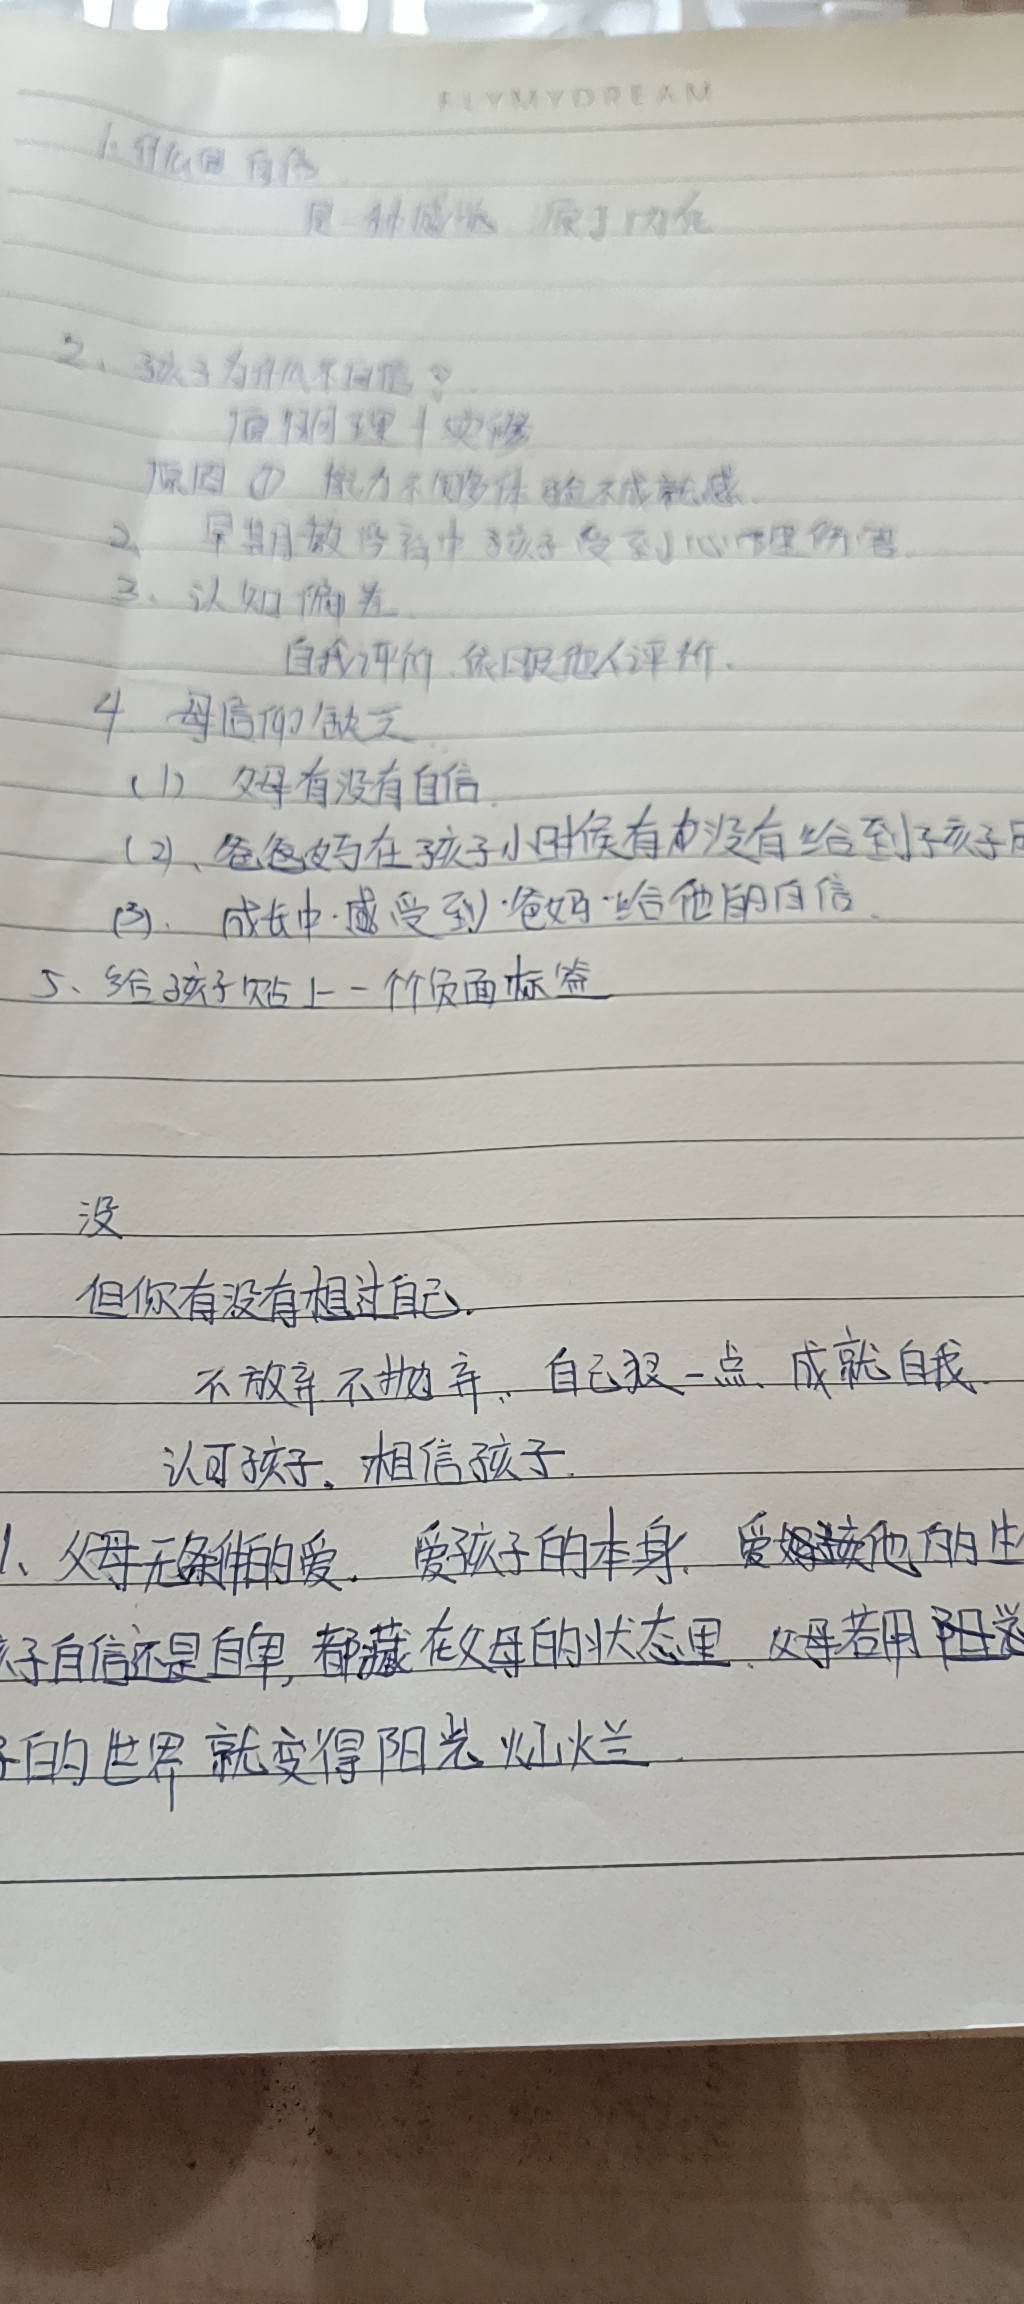 FLYMYDREAM
1. 什么是 自信
是一种感觉 源于内在
2、孩子为什么不自信？
原因 ① 能力不够 体验不成就感.
2、早期教 中 孩子受到心理伤害.
3、认知偏差
自我评价 依 他人评价.
4 母信仰缺乏
(1) 父母有没有自信.
(2)、爸爸妈在孩子小时候有 没有给到孩子
(3). 成长中·感受到·爸妈·给他的自信.
5、给孩子贴上一个负面标签
没
但你有没有想过自己.
不放弃不抛弃. 自己狠一点、成就自我.
认可孩子. 相信孩子.
1、父母无条件的爱. 爱孩子的本身. 爱 他的生
子自信还是自卑, 都藏在父母的状态里. 父母若用阳光
的世界就变得阳光灿烂.